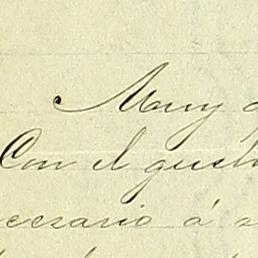 Muy
Con el gusto
cesario á